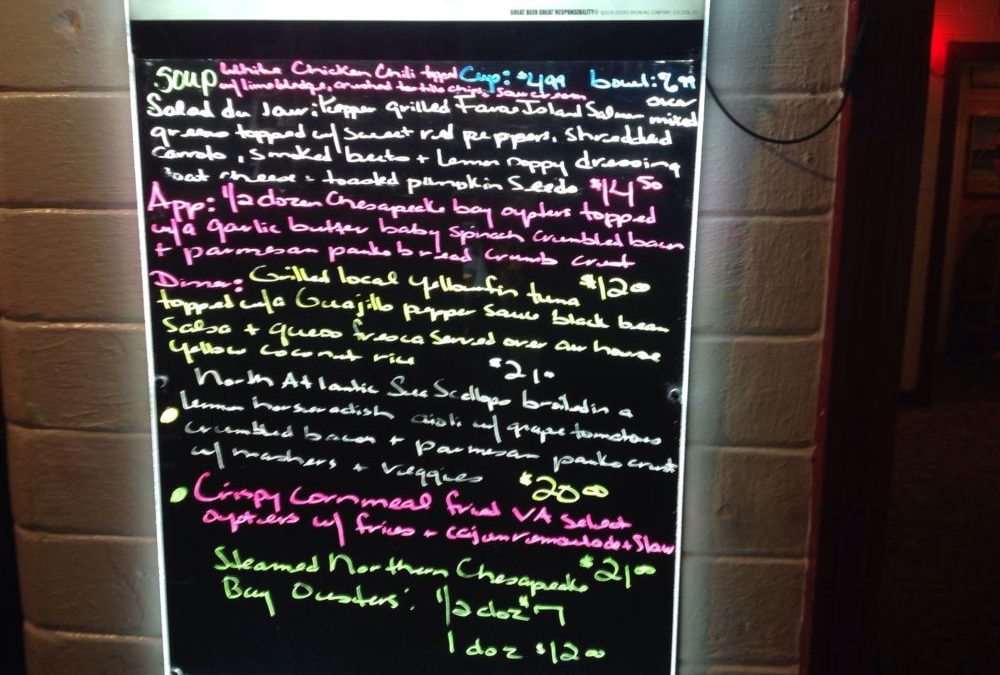 GREAT BEER GREAT RESPONSIBILITY®
Soup White Chicken Chili topped Cup: $4.99 bowl: 6.99
w/ lime wedge, crushed tortilla chips, sour cream
Salad du Jour: Pepper grilled Faroe Island Salmon over mixed
greens topped w/ Sweet red peppers, Shredded
Carrots, Smoked beets + Lemon Poppy dressing
goat cheese + toasted pumpkin Seeds $14.50
App: 1/2 dozen Chesapeake bay oysters topped
w/a garlic butter baby Spinach Crumbled bacon
+ parmesan panko bread crumb crust
$12.00
Dinner: Grilled local yellowfin tuna
topped w/a Guajillo pepper Sauce black bean
Salsa + queso fresca Served over our house
yellow coconut rice $21.00
North Atlantic Sea Scallops broiled in a
lemon horseradish aioli w/ grape tomatoes
crumbled bacon + parmesan panko crust
w/ mashers + veggies $20.00
Crispy Cornmeal fried VA Select
oysters w/ fries + cajun remoulade + Slaw
$21.00
Steamed Northern Chesapeake
Bay Oysters: 1/2 doz $7
1 doz $12.00